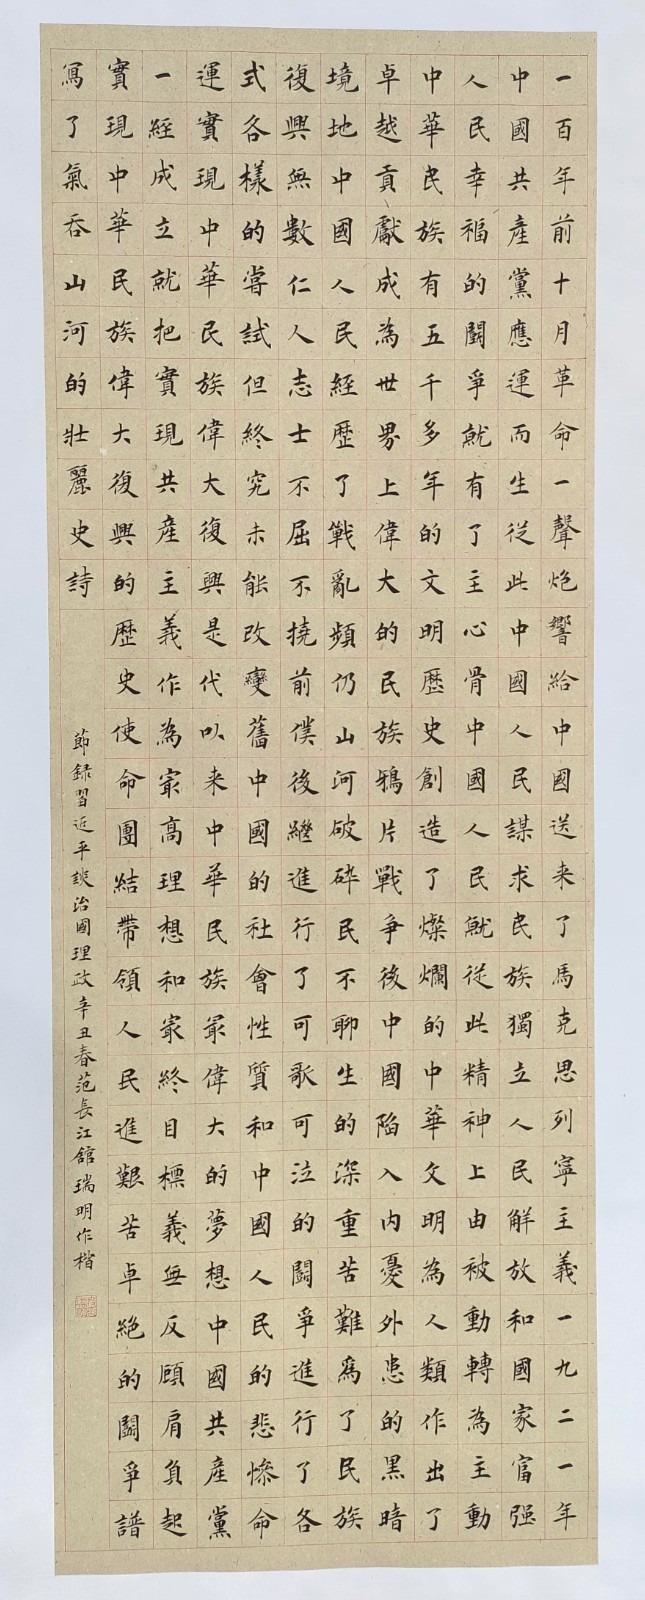 一百年前十月革命一聲炮響給中國送来了馬克思列寧主義一九二一年
中國共產黨應運而生從此中國人民謀求民族獨立人民解放和國家富强
人民幸福的鬪爭就有了主心骨中國人民就從此精神上由被動轉為主動
中華民族有五千多年的文明歷史創造了燦爛的中華文明為人類作出了
卓越貢獻成為世界上偉大的民族鴉片戰爭後中國陷入内憂外患的黑暗
境地中國人民經歷了戰亂頻仍山河破碎民不聊生的深重苦難為了民族
復興無數仁人志士不屈不撓前僕後繼進行了可歌可泣的鬪爭進行了各
式各樣的嘗試但終究未能改變舊中國的社會性質和中國人民的悲惨命
運實現中華民族偉大復興是代以来中華民族最偉大的夢想中國共產黨
一經成立就把實現共產主義作為最高理想和最終目標義無反顧肩負起
實現中華民族偉大復興的歷史使命團結帶領人民進艱苦卓絶的鬪爭譜
寫了氣吞山河的壯麗史詩
節録習近平談治國理政辛丑春范長江舘瑞明作楷